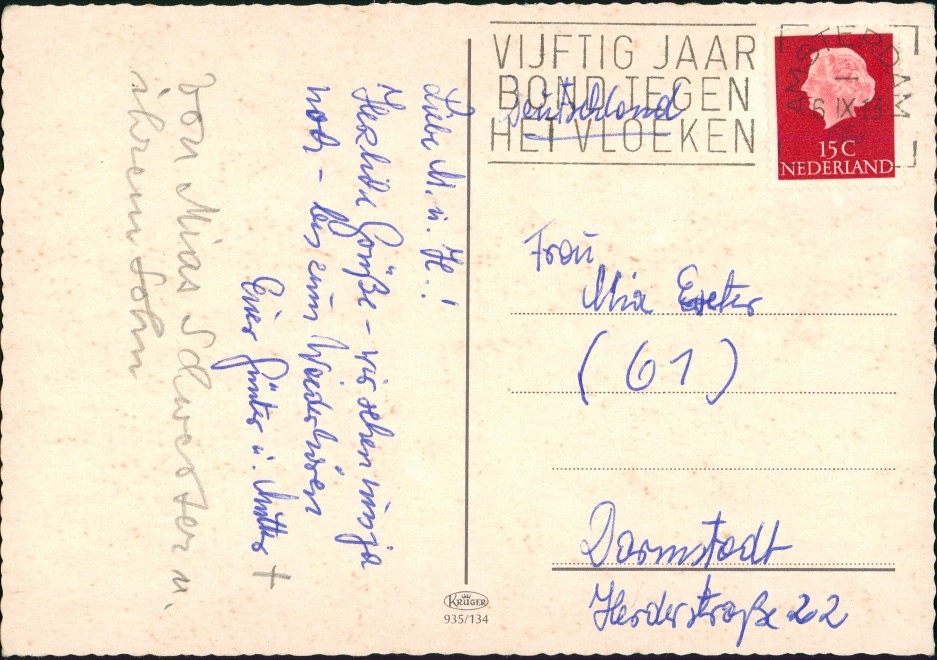 Liebe M. u. H.!
Herzliche Grüße – wir sehen uns ja
noch – bis zum Wiederhören
Euer Günter u. Mutter +
Von Mias Schwester u.
ihrem Sohn
VIJFTIG JAAR
BOND TEGEN
HET VLOEKEN
Deutschland
AMSTERDAM
6 IX 13
15 C
NEDERLAND
Frau
Mia Exeter
(61)
Darmstadt
Herderstraße 22
KRÜGER
935/134